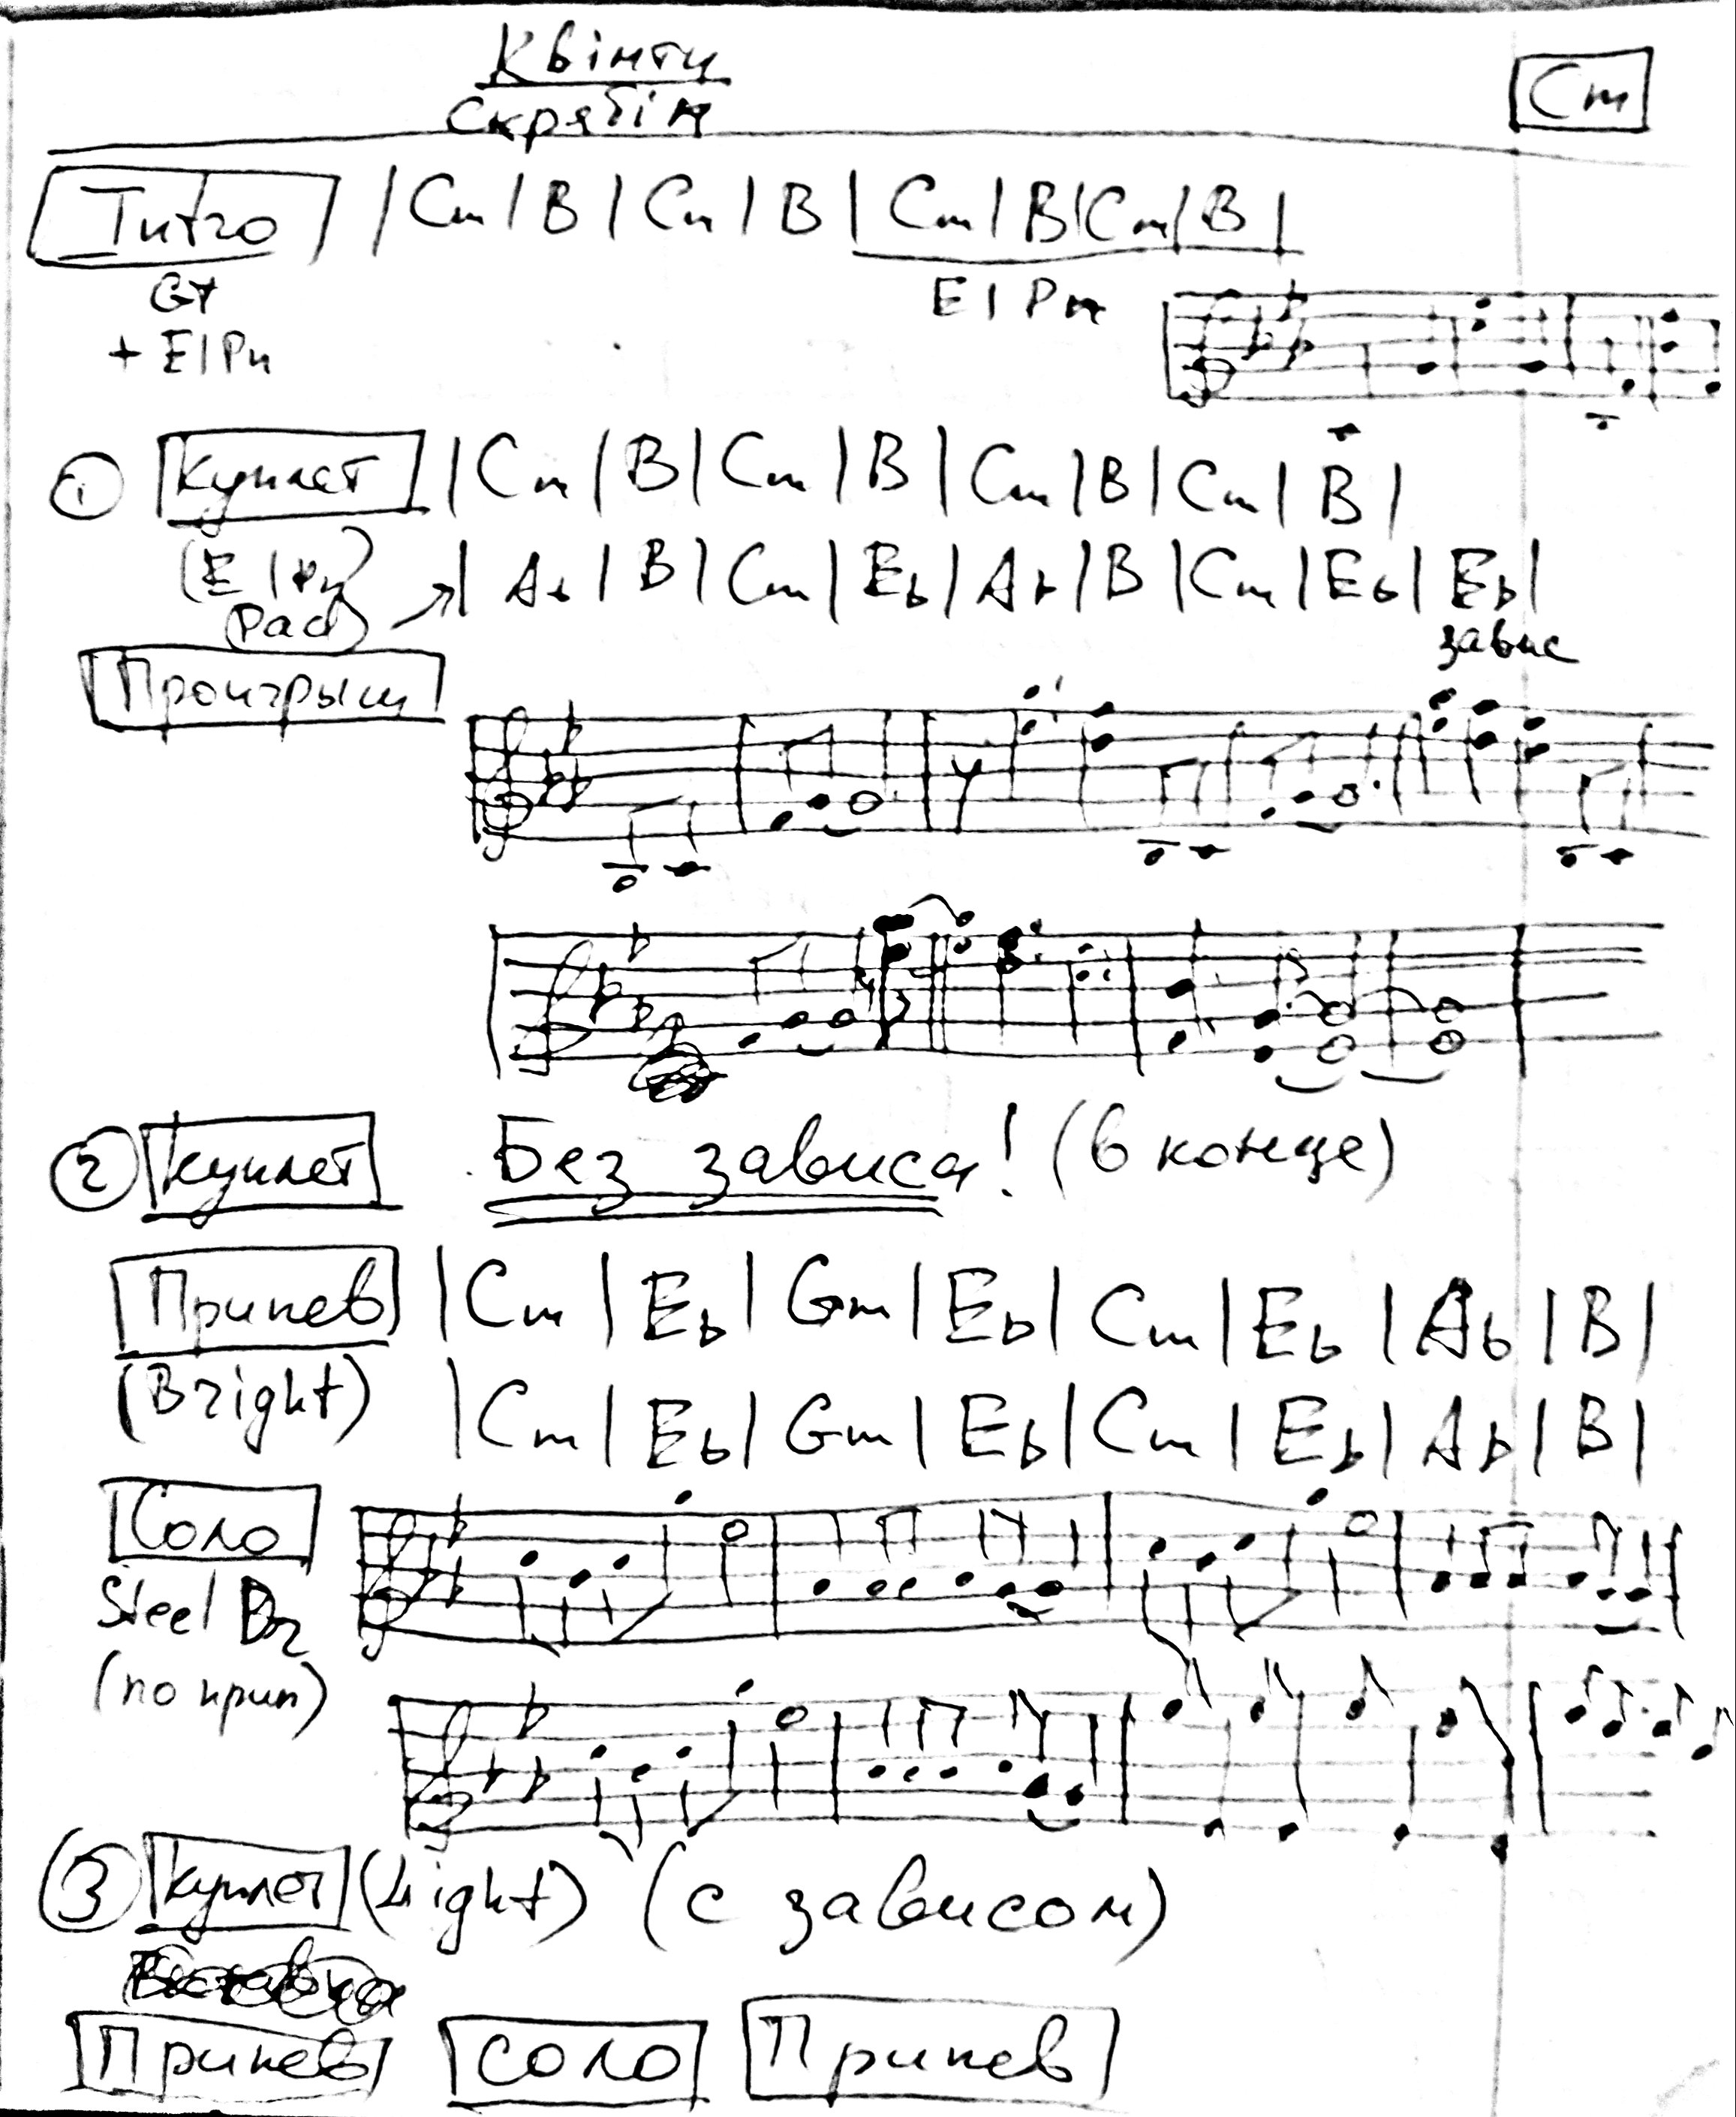 Квінти
Скрябін
Cm
Intro | Cm | B | Cm | B | Cm | B | Cm | B |
Gt
+ El Pn
El Pn
① Куплет | Cm | B | Cm | B | Cm | B | Cm | B |
(El Pn
Pad) → | Ab | B | Cm | Eb | Ab | B | Cm | Eb | Eb |
завис
Проигрыш
② Куплет Без зависа! (в конце)
Припев | Cm | Eb | Gm | Eb | Cm | Eb | Ab | B |
(Bright) | Cm | Eb | Gm | Eb | Cm | Eb | Ab | B |
Соло
Steel Dr
(по прип)
③ Куплет (Light) (с зависом)
Припев соло Припев